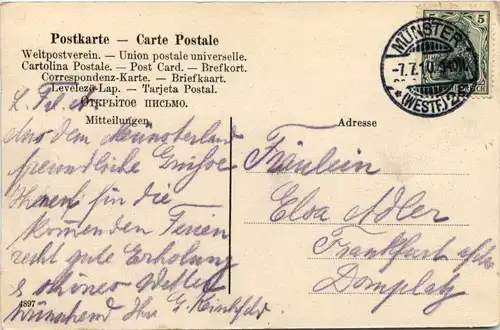 Postkarte — Carte Postale
Weltpostverein. — Union postale universelle.
Cartolina Postale. — Post Card. — Brefkort.
Correspondenz-Karte. — Briefkaart.
Levelező-Lap. — Tarjeta Postal.
ОТКРЫТОЕ ПИСЬМО.
Mitteilungen
Adresse
5 5
MÜNSTER
(WESTF.) 2
aus dem Münsterland
freundliche Grüße
Ihnen für die
kommenden Ferien
recht gute Erholung
& schönes Wetter
wünschend Ihr G.
4897
Fräulein
Elsa Adler
Frankfurt a/M
Domplatz